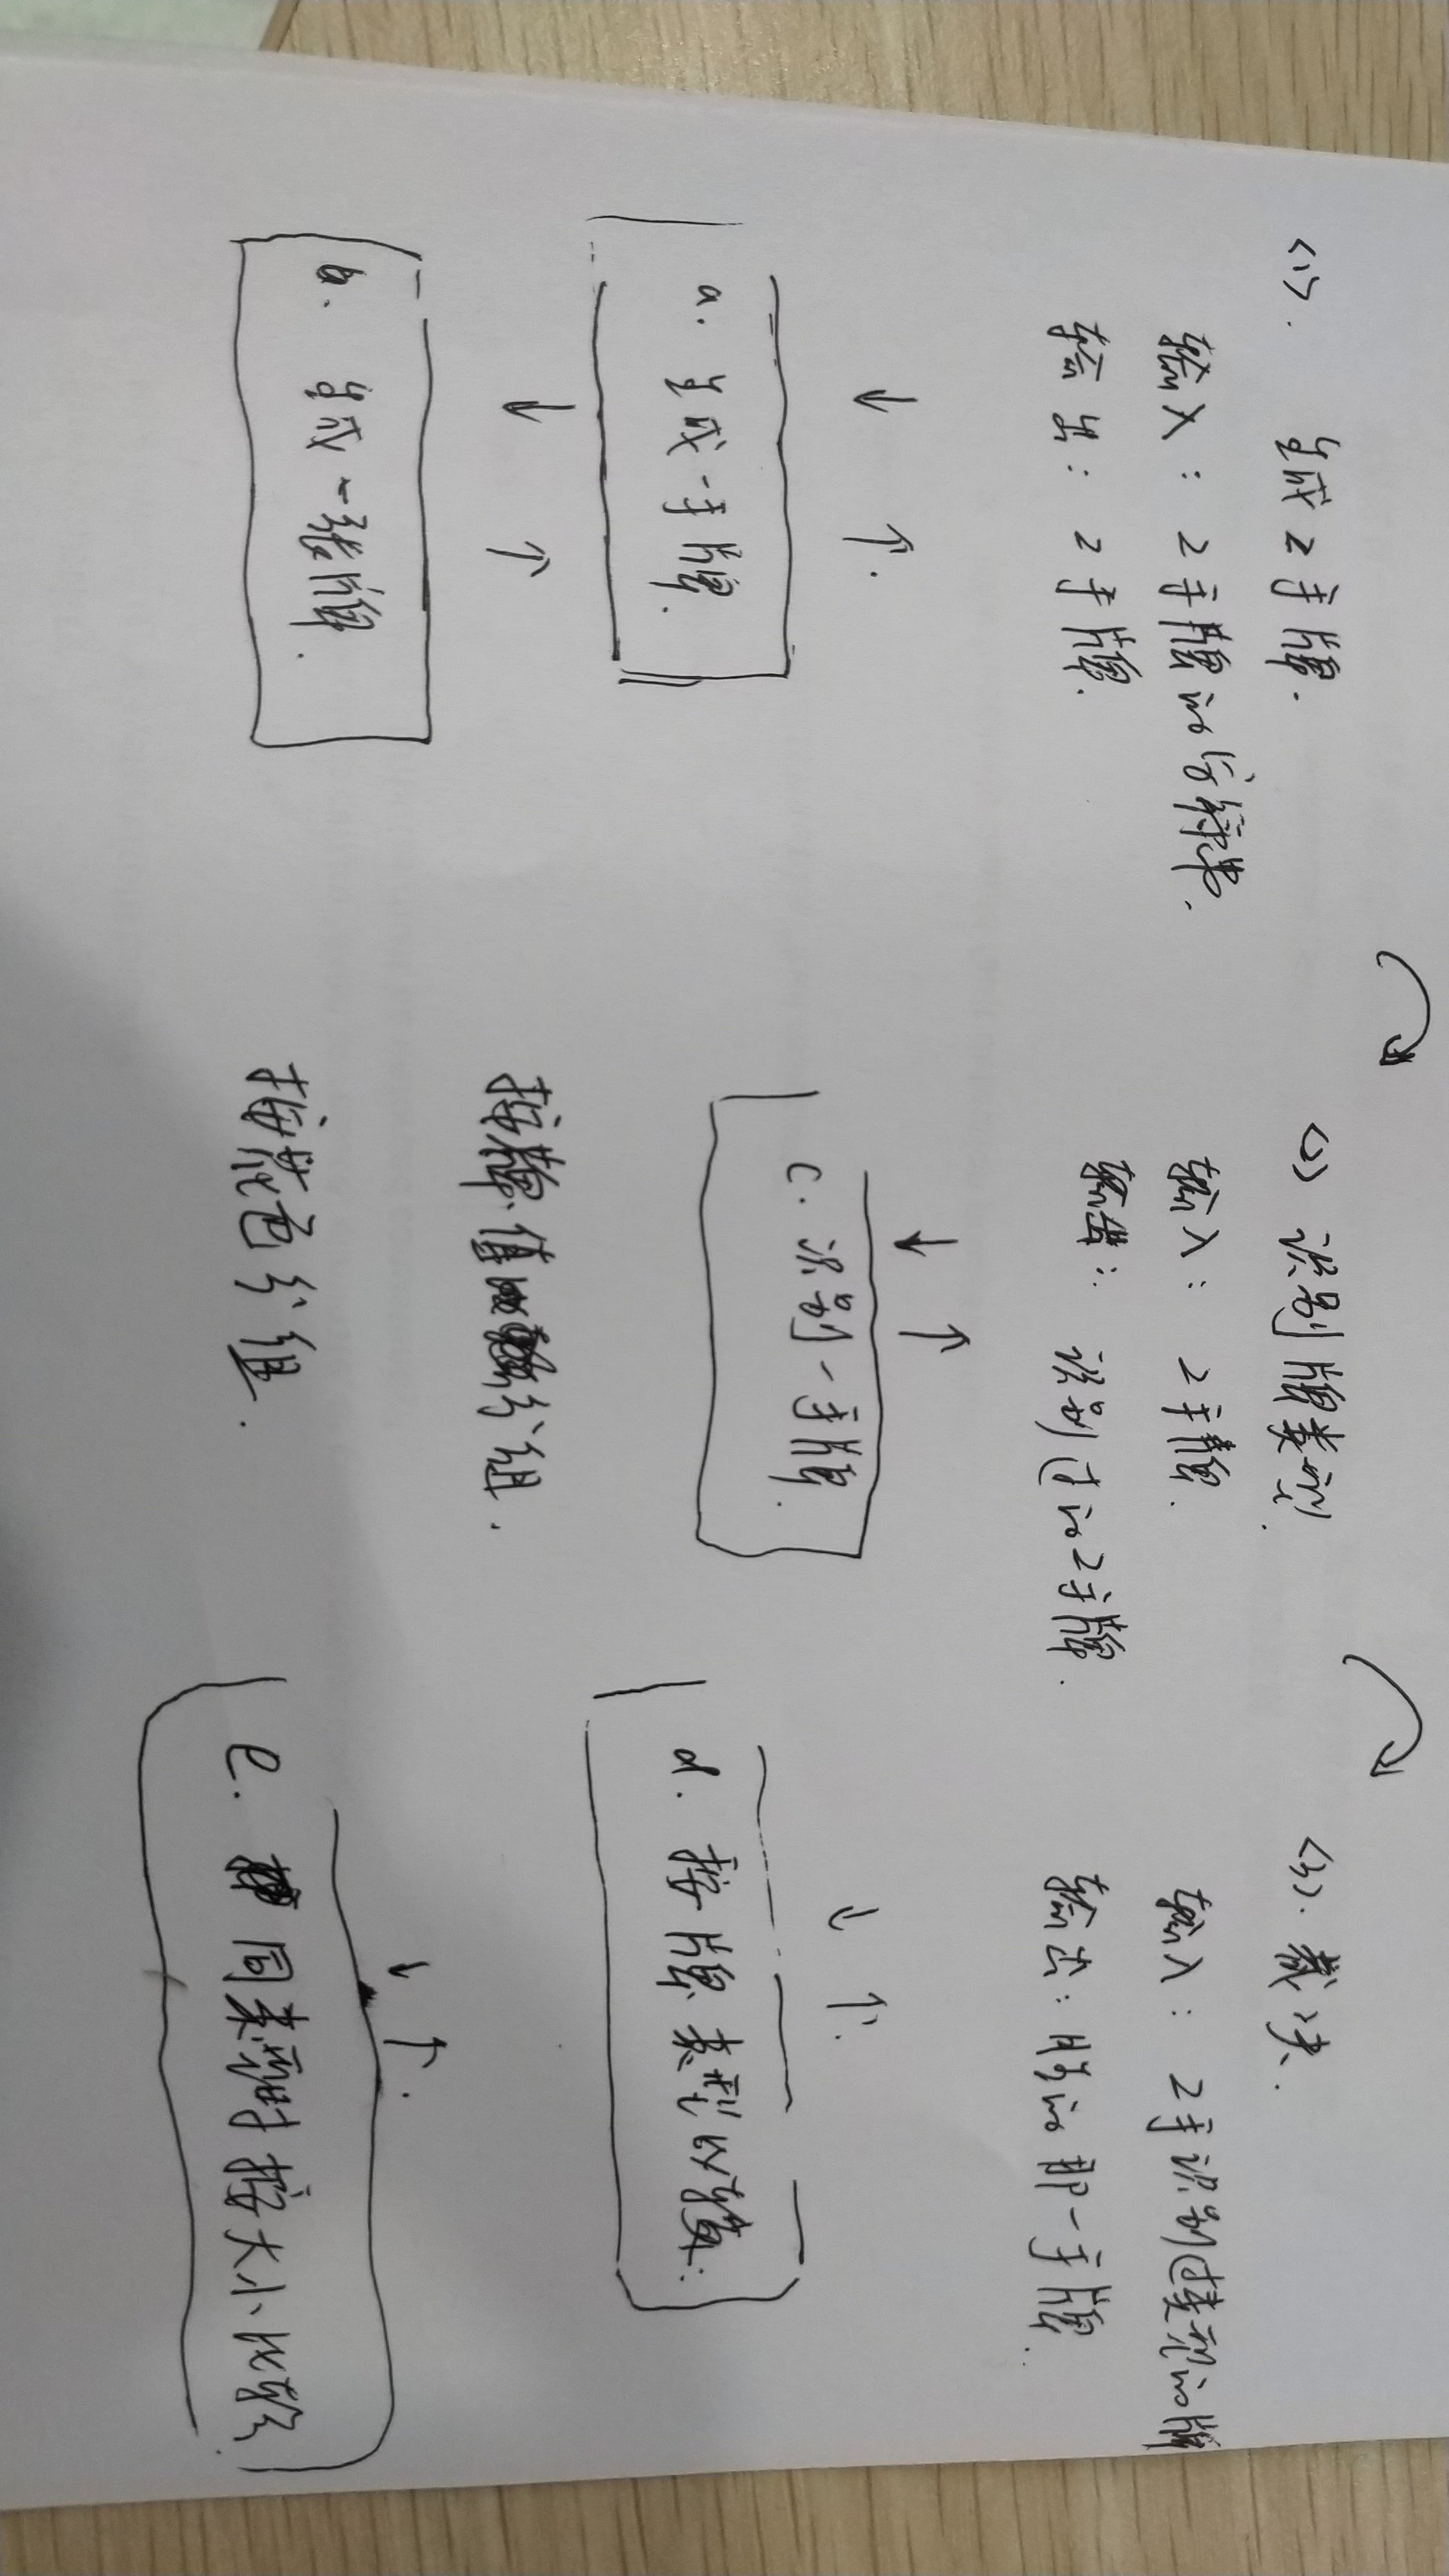 <1>. 生成2手牌.
输入: 2手牌的字符串.
输出: 2手牌.
↓ ↑.
a. 生成一手牌.
↓ ↑
b. 生成一张牌.
<2> 识别牌类型.
输入: 2手牌.
输出: 识别过的2手牌.
↓ ↑
c. 识别一手牌.
按牌值分组.
按花色分组.
<3>. 裁决.
输入: 2手识别过类型的牌
输出: 胜的那一手牌.
↓ ↑.
d. 按牌类型比较.
↓ ↑.
e. 同类型时按大小比较